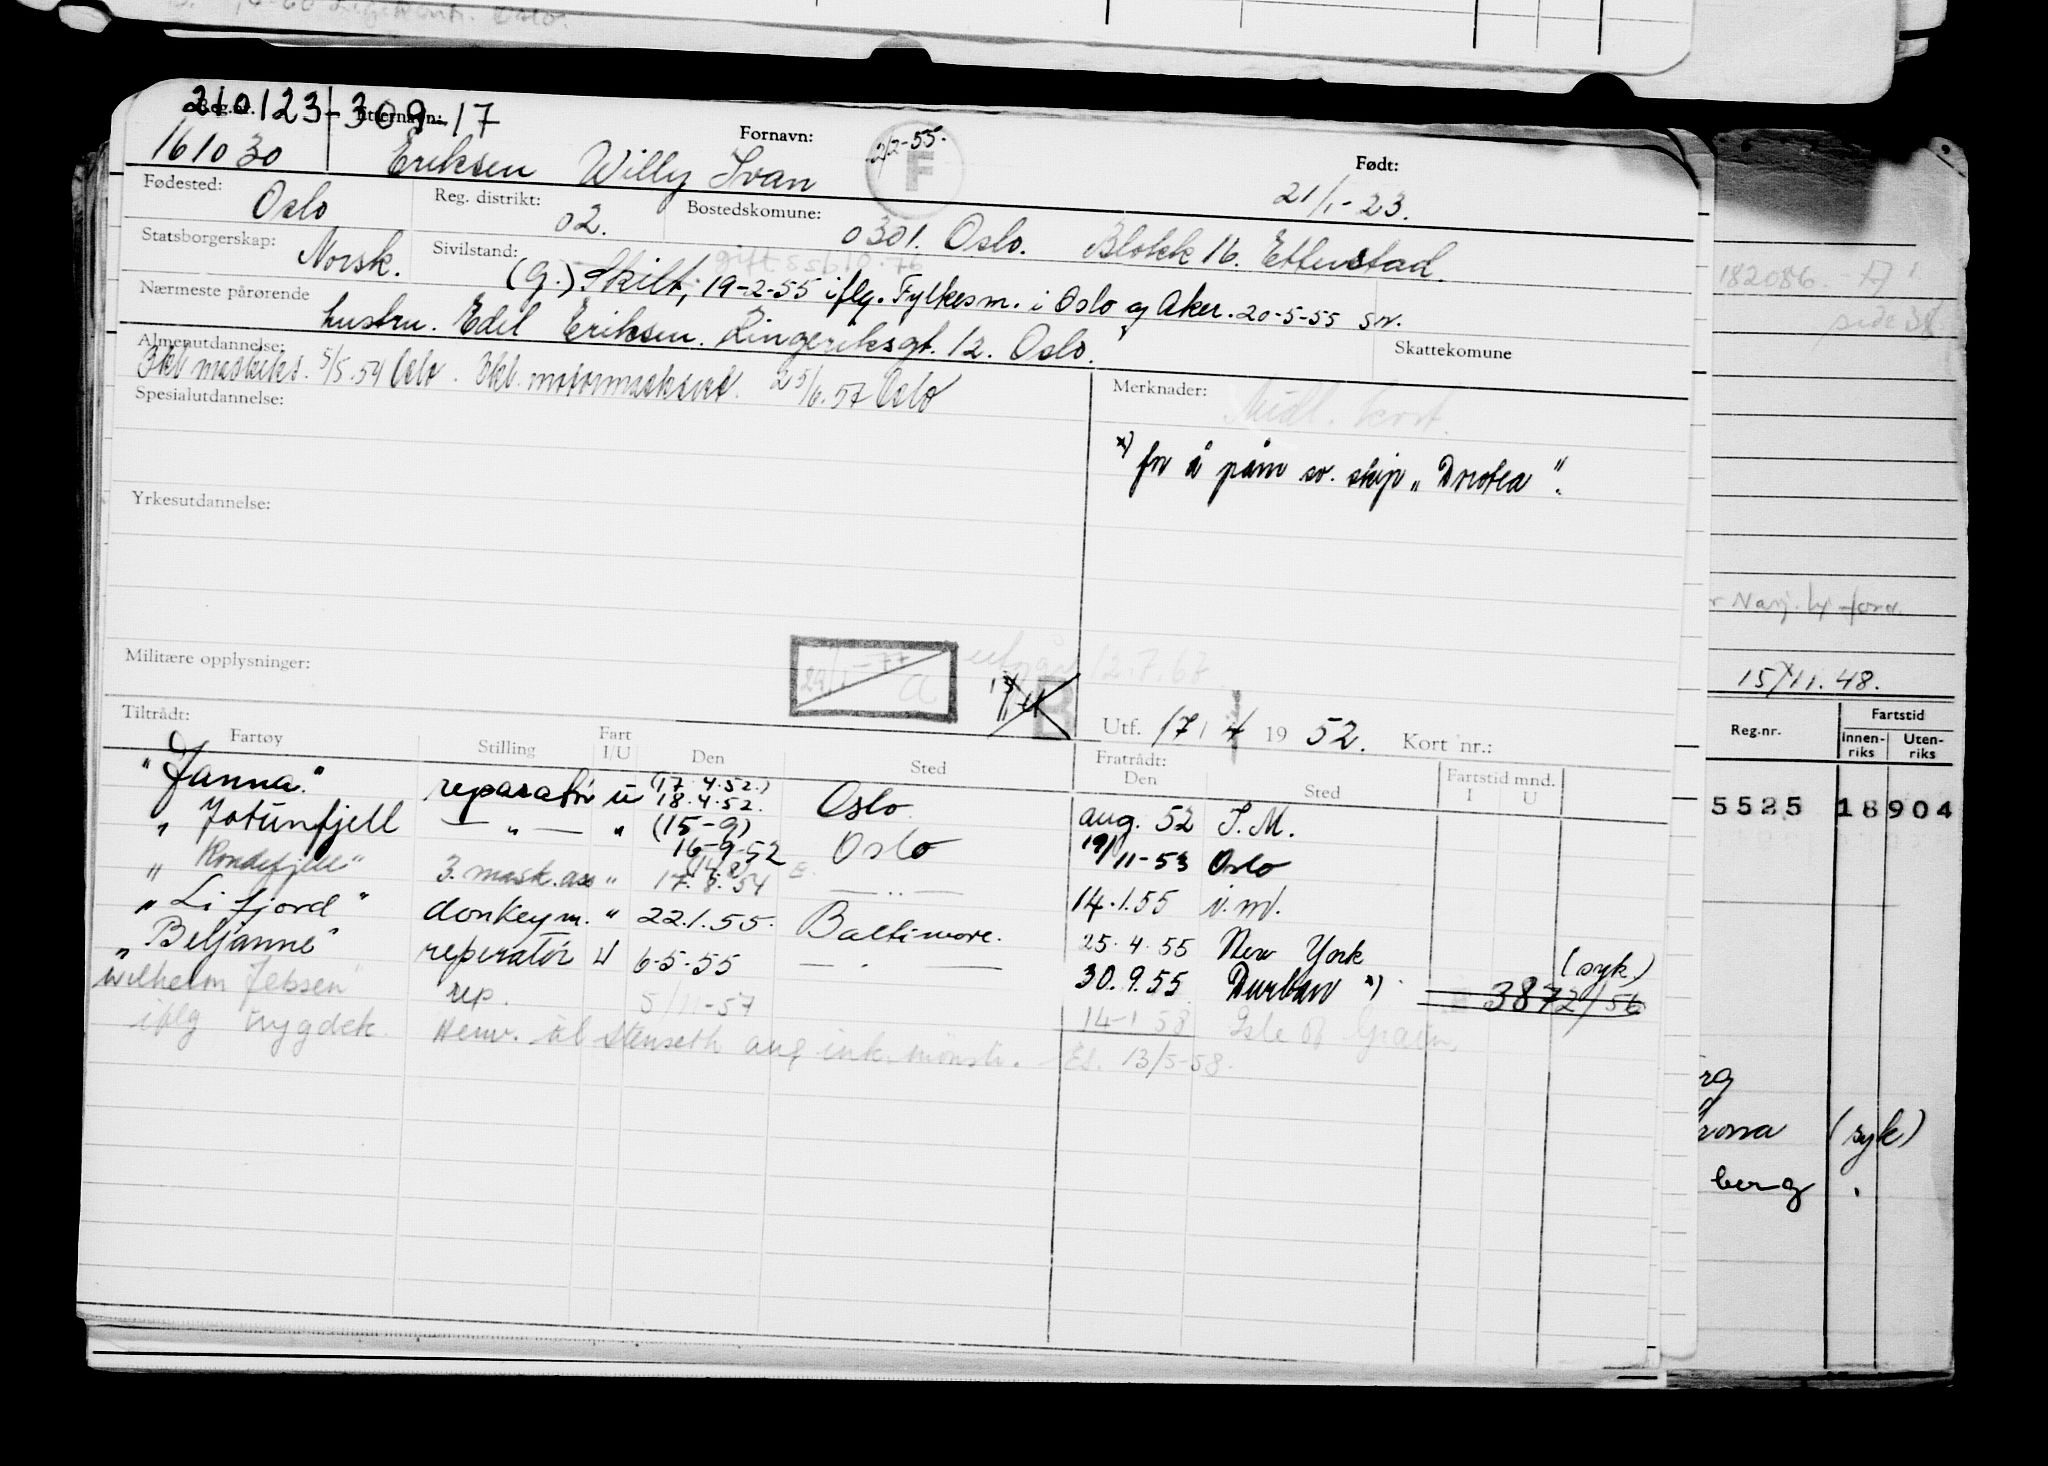 210123-309-17
Reg.nr. Etternavn: Fornavn: 2/2-55. F Født:
161030 Eriksen Willy Ivan 21/1-23.
Fødested: Oslo Reg. distrikt: 02. Bostedskomune: 0301. Oslo. Blokk 16. Etterstad.
Statsborgerskap: Norsk. Sivilstand: (G.) Skilt; 19-2-55 iflg. Fylkesm. i Oslo og Aker. 20-5-55 sw.
Nærmeste pårørende hustru. Edel Eriksen. Ringeriksgt. 12. Oslo.
Skattekomune
Almenutdannelse: 3kl maskiks. 5/5.54 Oslo. 3kl. motormaskund. 25/6.57 Oslo
Spesialutdannelse:
Merknader: Midl. kort.
x) for å påm sv. skip "Drotea".
Yrkesutdannelse:
Militære opplysninger:
12.7.67
Utf. 17/4 1952. Kort nr.:
Tiltrådt: Fratrådt:
Fartøy Stilling Fart I/U Den Sted Den Sted Fartstid mnd. I U
"Janna." reparatør u (17.4.52.) 18.4.52. Oslo. aug. 52 S.M.
" Jotunfjell — " — " (15-9) 16-9-52 Oslo 19/11-53 Oslo
" Rondefjell" 3. mask.ass " (14.8) 17.8.54 — " — 14.1.55 i.m.
" Li fjord" donkeym. " 22.1.55. Baltimore. 25.4.55 New York
" Beljanne" reperatør U 6-5-55 — " — 30.9.55 Durban x) (syk) 3872/56
Wilhelm Jebsen" rep. 5/11-57 14-1 58 Isle of Grain,
iflg trygdek. Henv. til Stenseth ang ink. mønstr. Es. 13/5-58.
182086.
side 38
15/11.48.
Reg.nr. Fartstid
Innen-riks Uten-riks
5525 18904
(syk)
berg